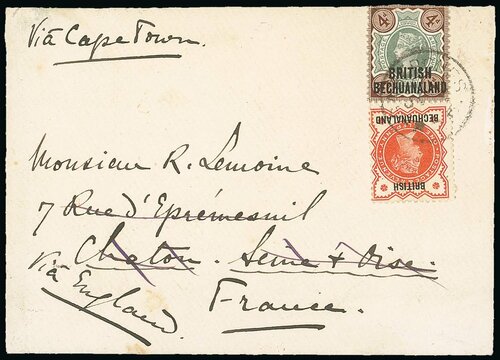 Via Cape Town.
4d 4d
BRITISH
BECHUANALAND
BRITISH
BECHUANALAND
Monsieur R. Lemoine
7 Rue d'Eprémesnil
Chaton. Seine & Oise.
Via England.
France.